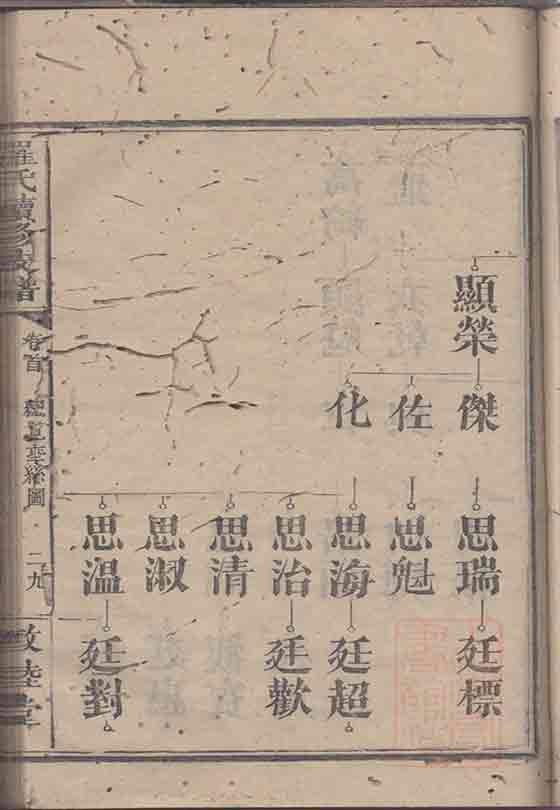 顯榮
傑
佐
化
思瑞
思魁
思海
思治
思清
思淑
思溫
廷標
廷超
廷歡
廷對
羅氏續修族譜
卷首
圖
二九
敦睦堂